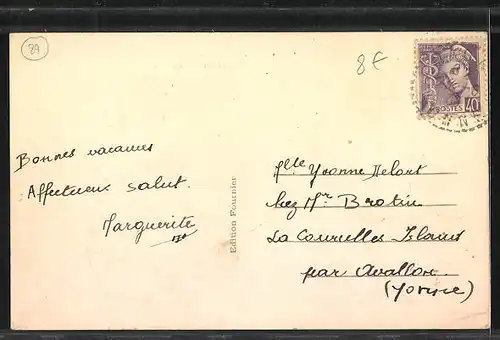 89
8€
POSTES 40
Bonnes vacances
Affectueux salut.
Marguerite
Edition Fournier
Mlle Yvonne
chez Mr Bratin
La
par Avallon.
(Yonne)